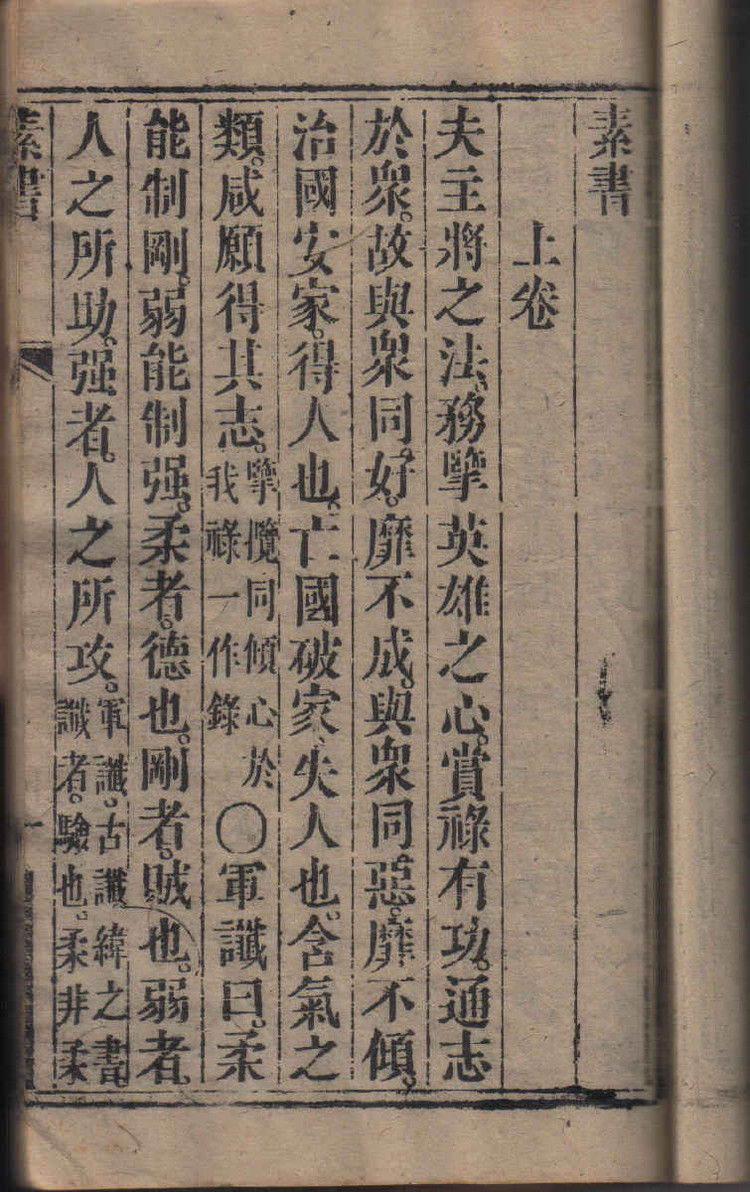 素書
上卷
夫主將之法、務擥英雄之心。賞祿有功。通志
於衆。故與衆同好。靡不成。與衆同惡。靡不傾。
治國安家。得人也。亡國破家、失人也。含氣之
類。咸願得其志。擥攬同傾心於我祿一作錄〇軍讖曰。柔
能制剛。弱能制强。柔者。德也。剛者。賊也。弱者。
人之所助。强者。人之所攻。軍讖。古讖緯之書。讖者。驗也。柔非柔
素書
一